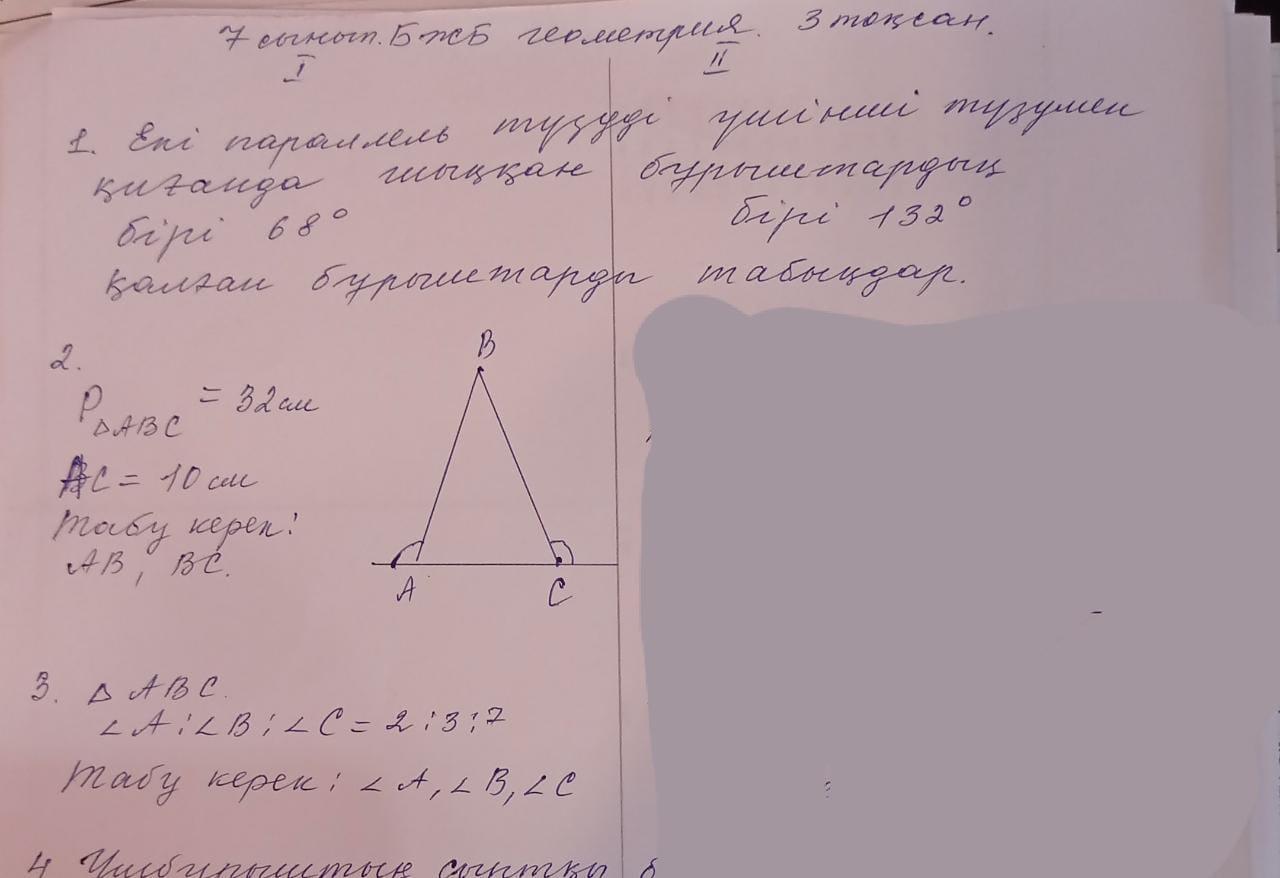 7 сынып. БЖБ геометрия. 3 тоқсан.
I II
1. Екі параллель түзуді үшінші түзумен
қиғанда шыққан бұрыштардың
бірі 68° бірі 132°
қалған бұрыштарды табыңдар.
B
2.
P△ABC = 32 см
AC = 10 см
Табу керек:
AB, BC.
A C
3. △ ABC.
∠A:∠B:∠C = 2:3:7
Табу керек: ∠A, ∠B, ∠C
4 Үшбұрыштың сыртқы б